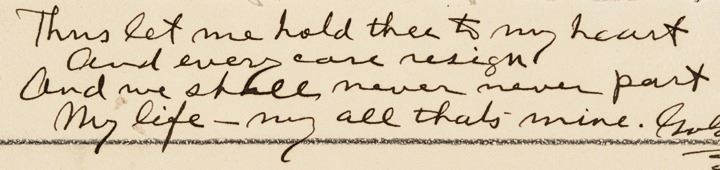 Thus let me hold thee to my heart
And every care resign
And we shall never never part
My life – my all thats mine.